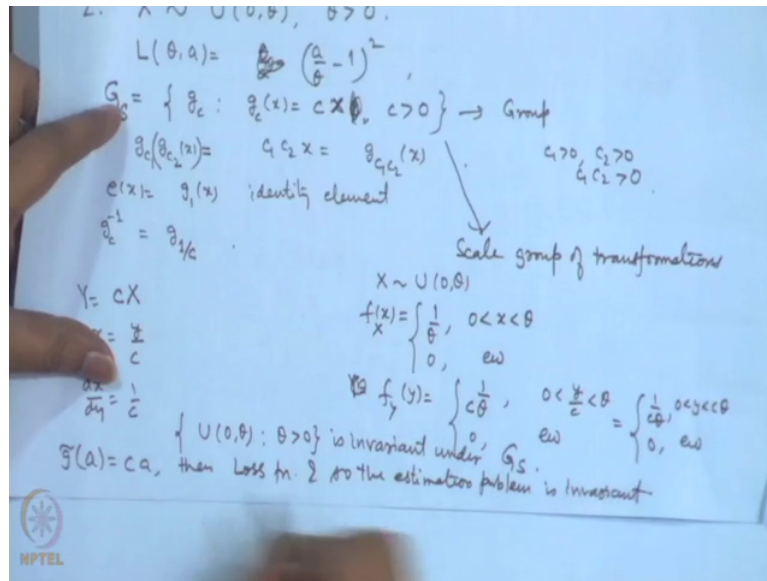 2. X ~ U(0,θ), θ>0.
L(θ,a) = (a/θ - 1)²,
G_S = { g_c : g_c(x) = cx, c>0 } → Group
g_{c_1}(g_{c_2}(x)) = c_1 c_2 x = g_{c_1c_2}(x)
c_1>0, c_2>0
c_1 c_2 >0.
e(x) = g_1(x) identity element
g_c^{-1} = g_{1/c}.
Scale group of transformations
Y = cX
X ~ U(0,θ)
= y/c
f_X(x) = { 1/θ, 0<x<θ
0, ew
dx/dy = 1/c
f_Y(y) = { 1/cθ, 0< y/c <θ = { 1/cθ, 0<y<cθ
0, ew 0, ew
{ U(0,θ) : θ>0 } is invariant under G_S.
g̃(a) = ca, then Loss fn. & so the estimation problem is invariant
NPTEL